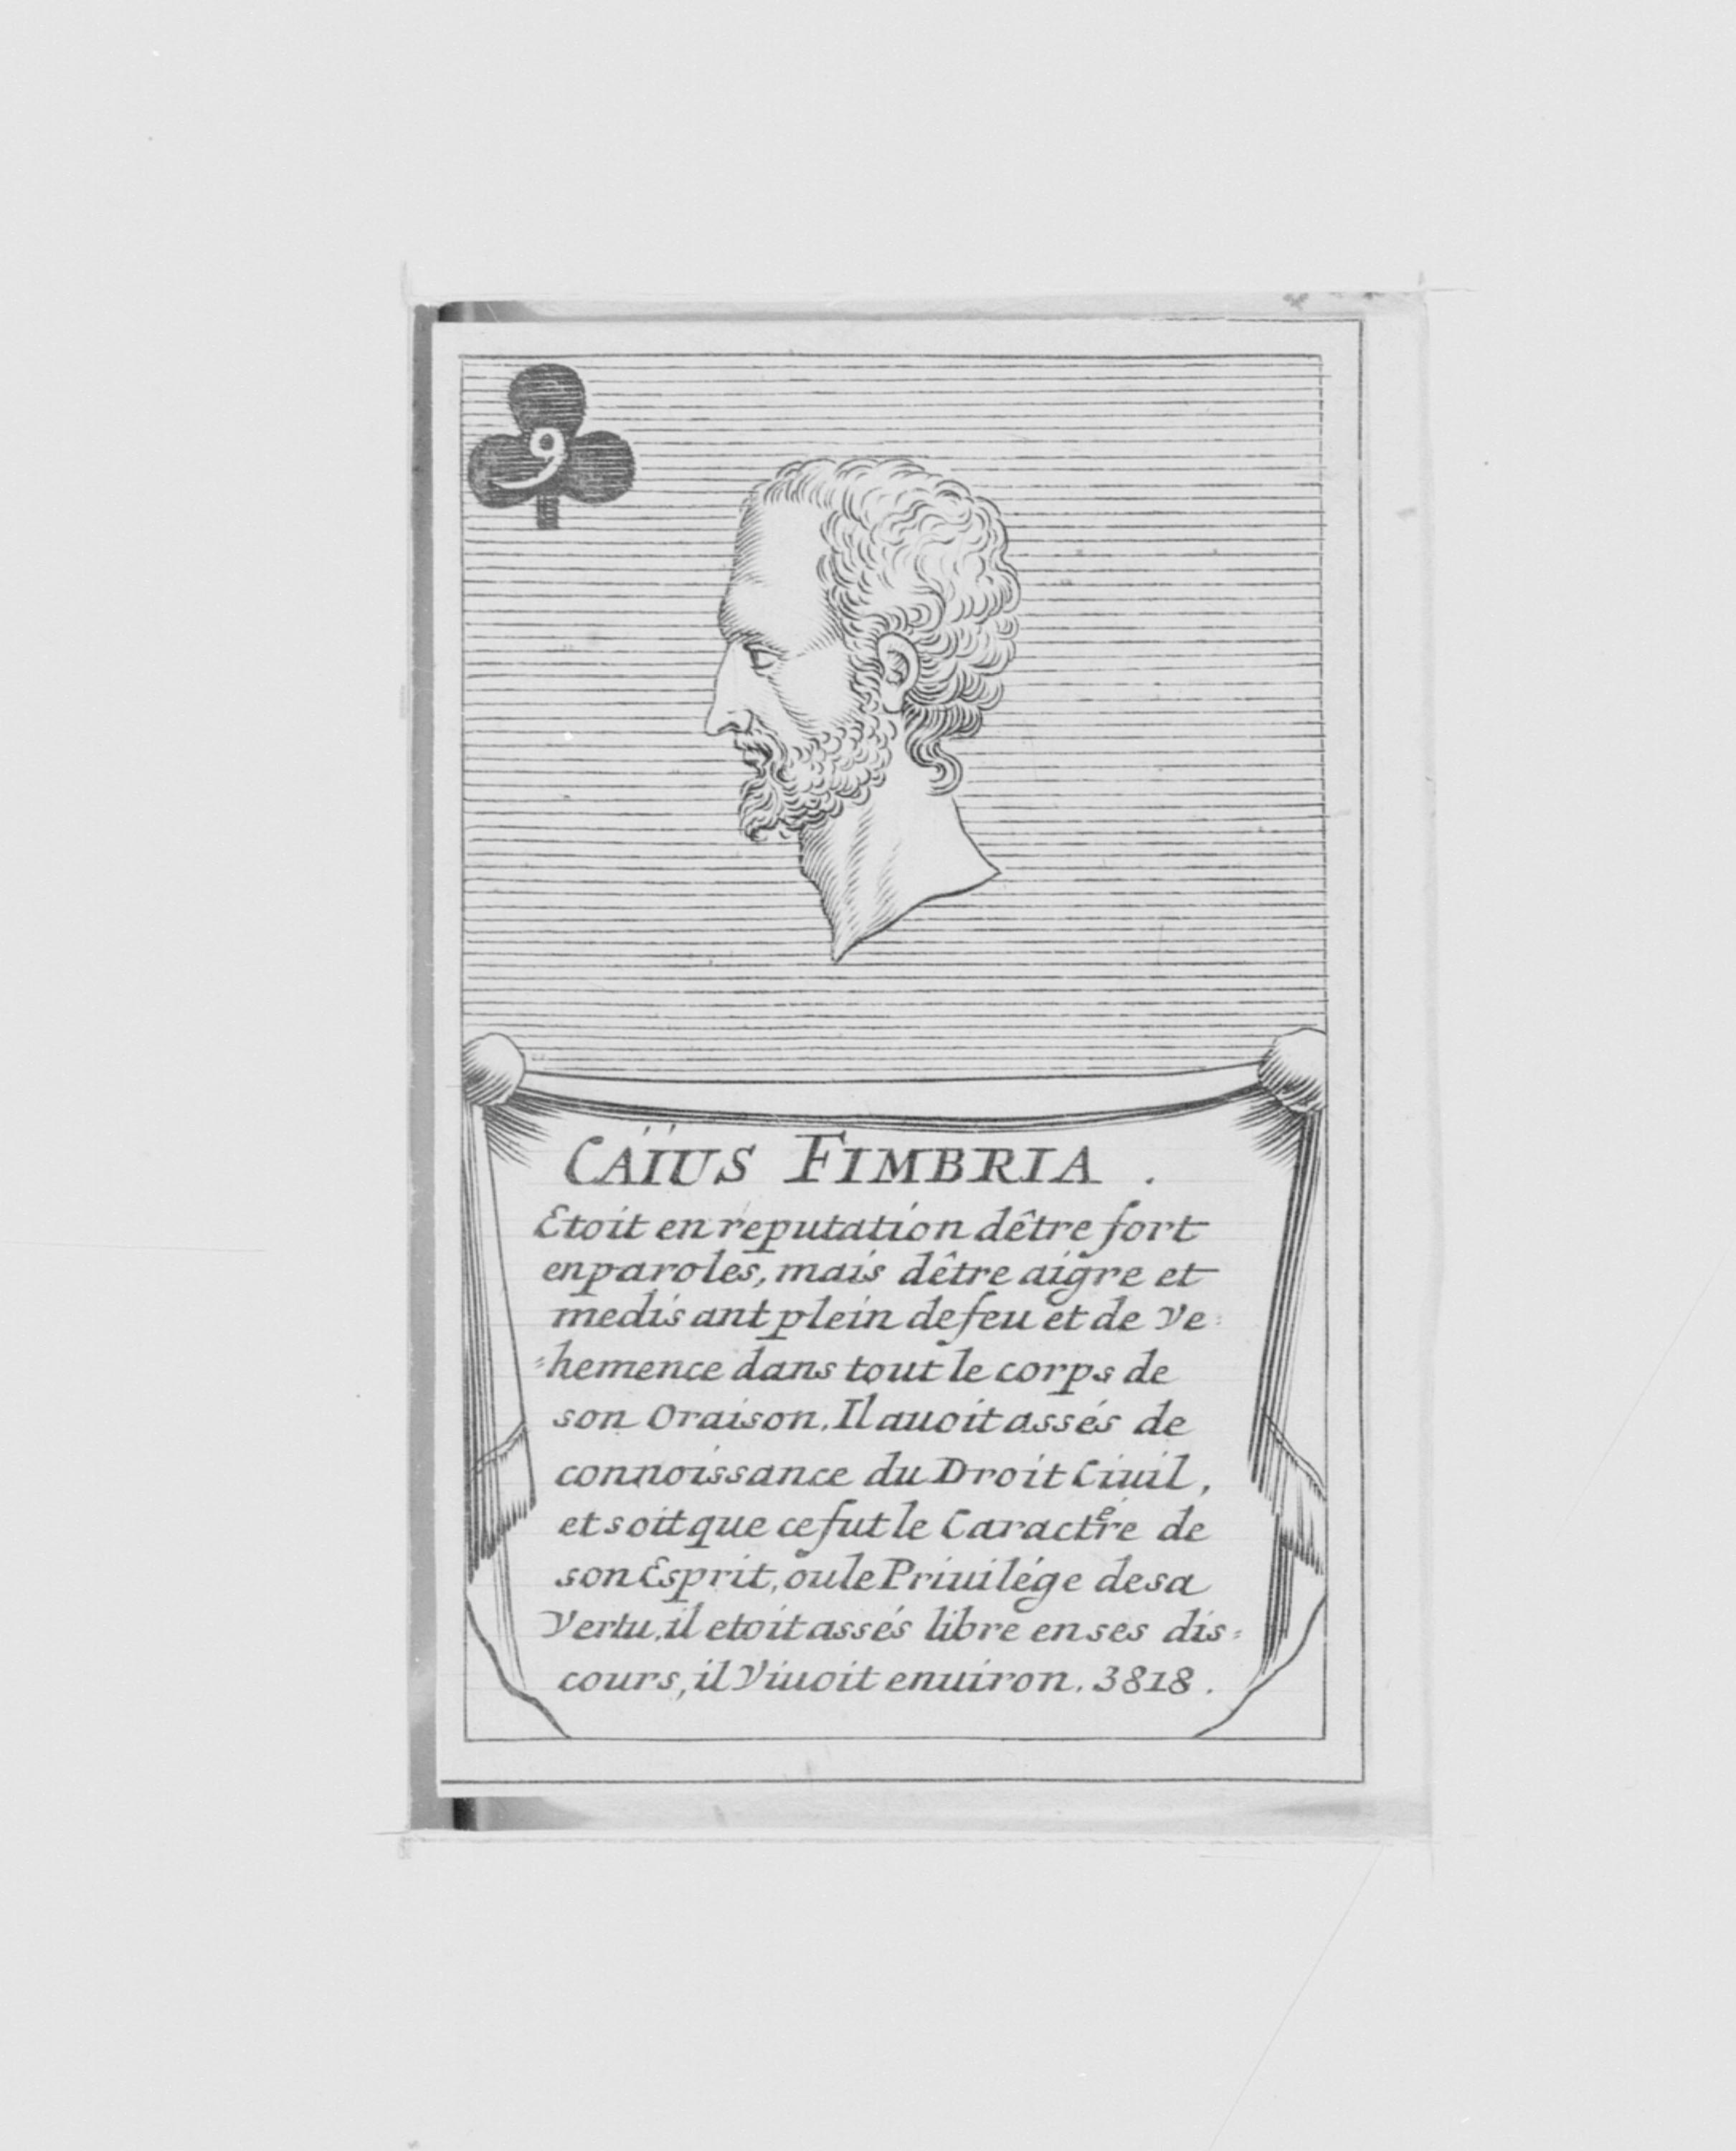 9
CAÏUS FIMBRIA.
Etoit en reputation dêtre fort
en paroles, mais dêtre aigre et
medisant plein de feu et de Ve=
=hemence dans tout le corps de
son Oraison. Il auoit assés de
connoissance du Droit Ciuil,
et soit que ce fut le Caractere de
son Esprit, ou le Priuilége de sa
Vertu, il etoit assés libre en ses dis=
cours, il Viuoit enuiron. 3818.